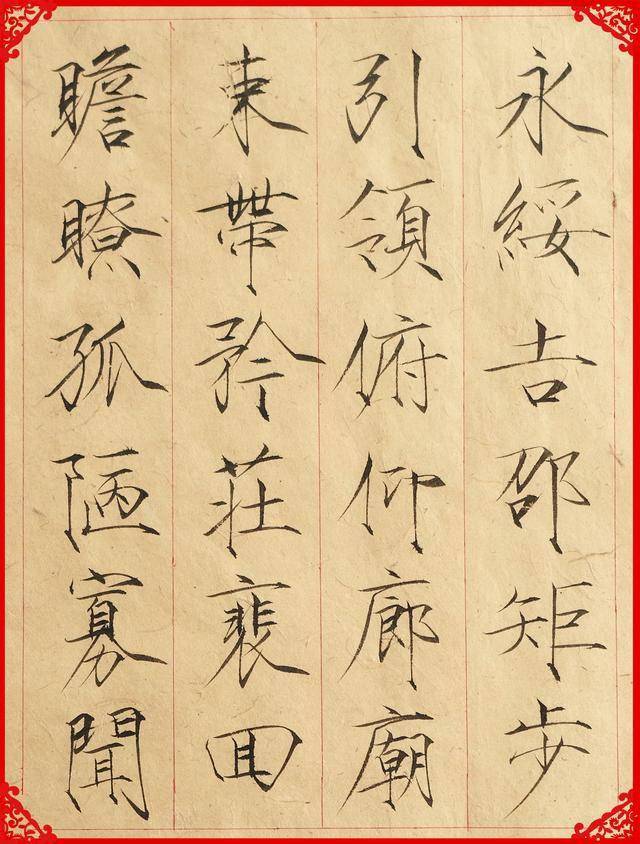 永綏吉邵矩步
引領俯仰廊廟
束帶矜莊裵回
瞻瞭孤陋寡聞